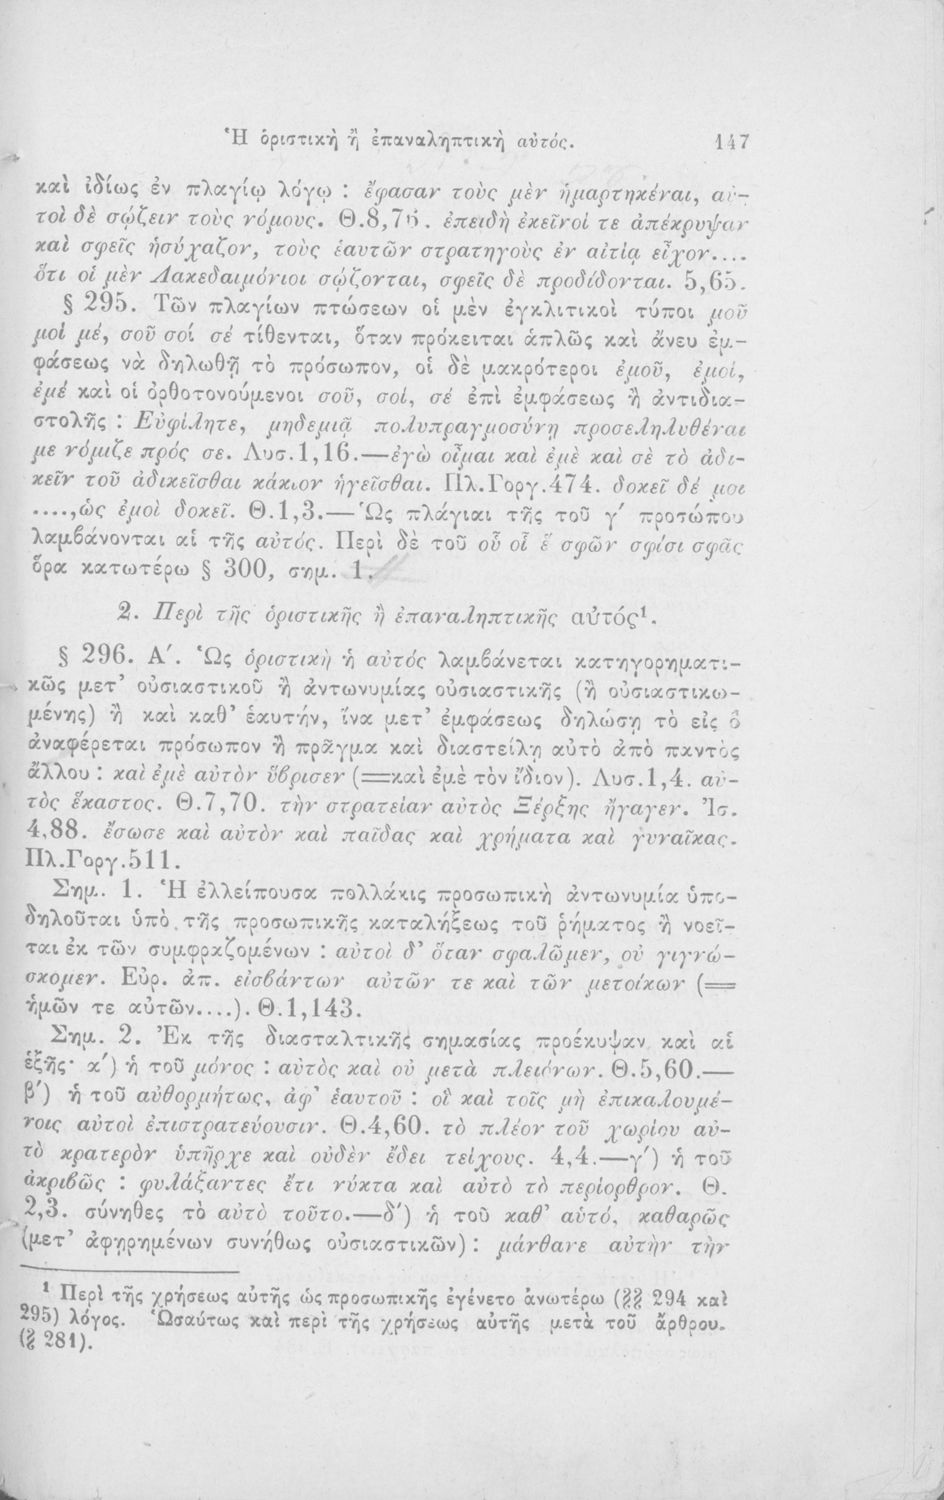 Ἡ ὁριστικὴ ἢ ἐπαναληπτικὴ αὐτός. 147
καὶ ἰδίως ἐν πλαγίῳ λόγῳ : ἔφασαν τοὺς μὲν ἡμαρτηκέναι, αὐ-
τοὶ δὲ σῴζειν τοὺς νόμους. Θ.8,76. ἐπειδὴ ἐκεῖνοί τε ἀπέκρυψαν
καὶ σφεῖς ἡσύχαζον, τοὺς ἑαυτῶν στρατηγοὺς ἐν αἰτίᾳ εἶχον....
ὅτι οἱ μὲν Λακεδαιμόνιοι σῴζονται, σφεῖς δὲ προδίδονται. 5,65.
§ 295. Τῶν πλαγίων πτώσεων οἱ μὲν ἐγκλιτικοὶ τύποι μοῦ
μοί μέ, σοῦ σοί σέ τίθενται, ὅταν πρόκειται ἁπλῶς καὶ ἄνευ ἐμ-
φάσεως νὰ δηλωθῇ τὸ πρόσωπον, οἱ δὲ μακρότεροι ἐμοῦ, ἐμοί,
ἐμέ καὶ οἱ ὀρθοτονούμενοι σοῦ, σοί, σέ ἐπὶ ἐμφάσεως ἢ ἀντιδια-
στολῆς : Εὐφίλητε, μηδεμιᾷ πολυπραγμοσύνῃ προσεληλυθέναι
με νόμιζε πρός σε. Λυσ.1,16.—ἐγὼ οἶμαι καὶ ἐμὲ καὶ σὲ τὸ ἀδι-
κεῖν τοῦ ἀδικεῖσθαι κάκιον ἡγεῖσθαι. Πλ.Γοργ.474. δοκεῖ δέ μοι
....,ὡς ἐμοὶ δοκεῖ. Θ.1,3.—Ὡς πλάγιαι τῆς τοῦ γ′ προσώπου
λαμβάνονται αἱ τῆς αὐτός. Περὶ δὲ τοῦ οὗ οἷ ἕ σφῶν σφίσι σφᾶς
ὅρα κατωτέρω § 300, σημ. 1.
2. Περὶ τῆς ὁριστικῆς ἢ ἐπαναληπτικῆς αὐτός¹.
§ 296. Α′. Ὡς ὁριστικὴ ἡ αὐτός λαμβάνεται κατηγορηματι-
κῶς μετ’ οὐσιαστικοῦ ἢ ἀντωνυμίας οὐσιαστικῆς (ἢ οὐσιαστικω-
μένης) ἢ καὶ καθ’ ἑαυτήν, ἵνα μετ’ ἐμφάσεως δηλώσῃ τὸ εἰς ὃ
ἀναφέρεται πρόσωπον ἢ πρᾶγμα καὶ διαστείλῃ αὐτὸ ἀπὸ παντὸς
ἄλλου : καὶ ἐμὲ αὐτὸν ὕβρισεν (=καὶ ἐμὲ τὸν ἴδιον). Λυσ.1,4. αὐ-
τὸς ἕκαστος. Θ.7,70. τὴν στρατείαν αὐτὸς Ξέρξης ἤγαγεν. Ἰσ.
4,88. ἔσωσε καὶ αὐτὸν καὶ παῖδας καὶ χρήματα καὶ γυναῖκας.
Πλ.Γοργ.511.
Σημ. 1. Ἡ ἐλλείπουσα πολλάκις προσωπικὴ ἀντωνυμία ὑπο-
δηλοῦται ὑπὸ τῆς προσωπικῆς καταλήξεως τοῦ ῥήματος ἢ νοεῖ-
ται ἐκ τῶν συμφραζομένων : αὐτοὶ δ’ ὅταν σφαλῶμεν, οὐ γιγνώ-
σκομεν. Εὐρ. ἀπ. εἰσβάντων αὐτῶν τε καὶ τῶν μετοίκων (=
ἡμῶν τε αὐτῶν....). Θ.1,143.
Σημ. 2. Ἐκ τῆς διασταλτικῆς σημασίας προέκυψαν καὶ αἱ
ἑξῆς· α′) ἡ τοῦ μόνος : αὐτὸς καὶ οὐ μετὰ πλειόνων. Θ.5,60.—
β′) ἡ τοῦ αὐθορμήτως, ἀφ’ ἑαυτοῦ : οἳ καὶ τοῖς μὴ ἐπικαλουμέ-
νοις αὐτοὶ ἐπιστρατεύουσιν. Θ.4,60. τὸ πλέον τοῦ χωρίου αὐ-
τὸ κρατερὸν ὑπῆρχε καὶ οὐδὲν ἔδει τείχους. 4,4.—γ′) ἡ τοῦ
ἀκριβῶς : φυλάξαντες ἔτι νύκτα καὶ αὐτὸ τὸ περίορθρον. Θ.
2,3. σύνηθες τὸ αὐτὸ τοῦτο.—δ′) ἡ τοῦ καθ’ αὑτό, καθαρῶς
(μετ’ ἀφῃρημένων συνήθως οὐσιαστικῶν) : μάνθανε αὐτὴν τὴν
¹ Περὶ τῆς χρήσεως αὐτῆς ὡς προσωπικῆς ἐγένετο ἀνωτέρω (§§ 294 καὶ
295) λόγος. Ὡσαύτως καὶ περὶ τῆς χρήσεως αὐτῆς μετὰ τοῦ ἄρθρου.
(§ 281).